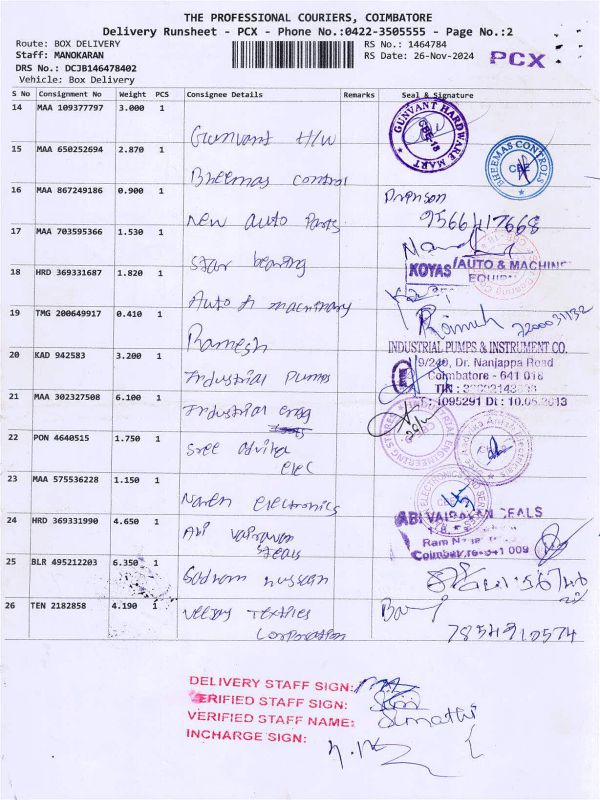 THE PROFESSIONAL COURIERS, COIMBATORE
Delivery Runsheet - PCX - Phone No.:0422-3505555 - Page No.:2
Route: BOX DELIVERY
RS No.: 1464784
Staff: MANOKARAN
RS Date: 26-Nov-2024
PCX
DRS No.: DCJB146478402
Vehicle: Box Delivery
S No Consignment No Weight PCS Consignee Details Remarks Seal & Signature
14 MAA 109377797 3.000 1
Gunvant H/W
GUNVANT HARDWARE MART
CBE-18
15 MAA 650252694 2.870 1
Bheemas control
BHEEMAS CONTROLS
CBE
16 MAA 867249186 0.900 1
New auto Parts
9566417668
17 MAA 703595366 1.530 1
Star bearing
18 HRD 369331687 1.820 1
Auto & machinary
KOYAS AUTO & MACHINE
EQUIP
19 TMG 200649917 0.410 1
Ramesh
20 KAD 942583 3.200 1
Industrial Pumps
INDUSTRIAL PUMPS & INSTRUMENT CO.
9/240, Dr. Nanjappa Road
Coimbatore - 641 018
21 MAA 302327508 6.100 1
Industrial engg
22 PON 4640515 1.750 1
Sree advika
elec
23 MAA 575536228 1.150 1
Naren electronics
24 HRD 369331990 4.650 1
Abi Vairavan
Seals
ABI VAIRAVAN SEALS
25 BLR 495212203 6.350 1
26 TEN 2182858 4.190 1
Veejay Textiles
Corporation
7854910574
DELIVERY STAFF SIGN:
VERIFIED STAFF SIGN:
VERIFIED STAFF NAME: Sumathi
INCHARGE SIGN: